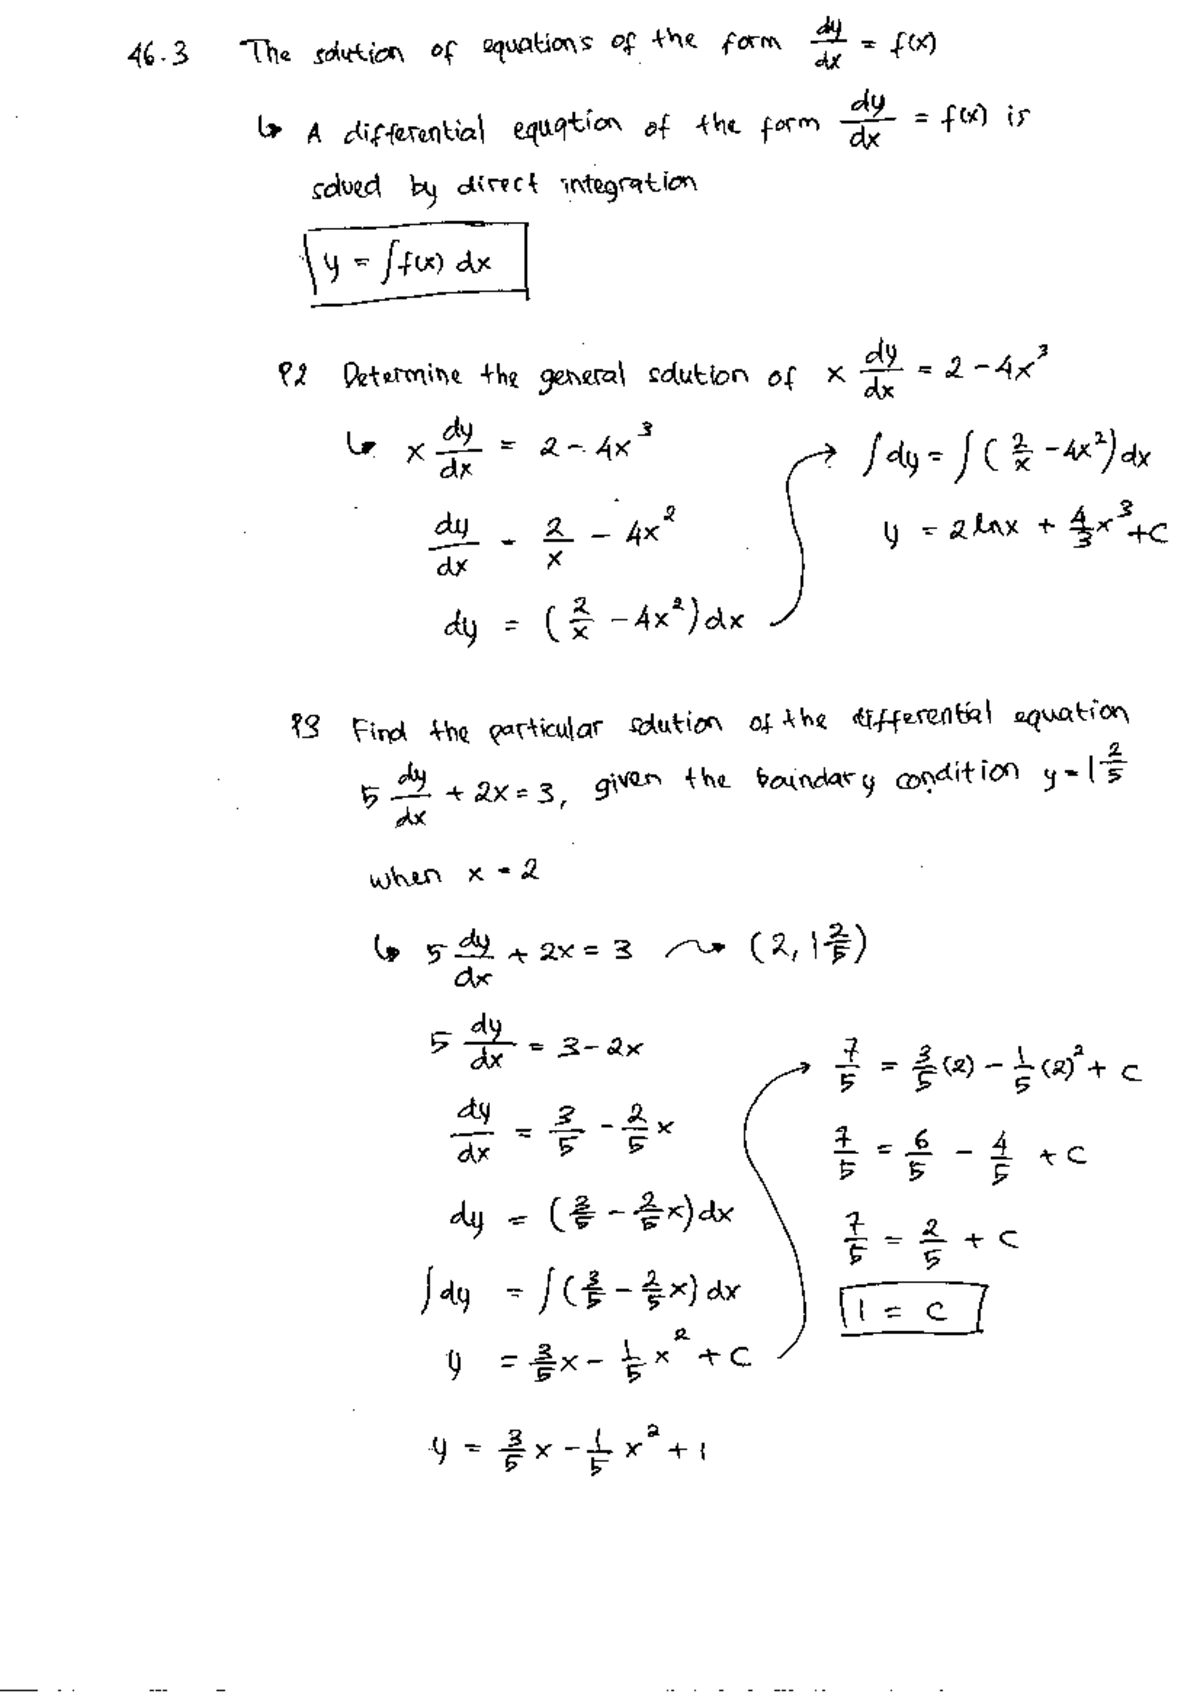 46.3 The solution of equations of the form dy/dx = f(x)
↳ A differential equation of the form dy/dx = f(x) is
solved by direct integration
y = ∫f(x) dx
P2 Determine the general solution of x dy/dx = 2 - 4x³
↳ x dy/dx = 2 - 4x³
dy/dx = 2/x - 4x²
dy = (2/x - 4x²)dx
→ ∫dy = ∫(2/x - 4x²)dx
y = 2lnx + 4/3 x³ + C
P3 Find the particular solution of the differential equation
5 dy/dx + 2x = 3, given the baindary condition y = 1 2/5
when x = 2
↳ 5 dy/dx + 2x = 3 → (2, 1 2/5)
5 dy/dx = 3 - 2x
dy/dx = 3/5 - 2/5 x
dy = (3/5 - 2/5 x)dx
∫dy = ∫(3/5 - 2/5 x)dx
y = 3/5 x - 1/5 x² + C
→ 7/5 = 3/5 (2) - 1/5 (2)² + C
7/5 = 6/5 - 4/5 + C
7/5 = 2/5 + C
1 = C
y = 3/5 x - 1/5 x² + 1